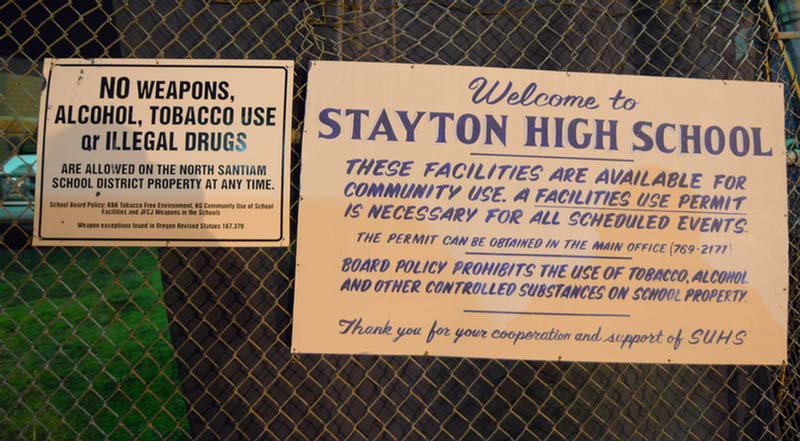 NO WEAPONS,
ALCOHOL, TOBACCO USE
or ILLEGAL DRUGS
ARE ALLOWED ON THE NORTH SANTIAM
SCHOOL DISTRICT PROPERTY AT ANY TIME.
School Board Policy: KBK Tobacco Free Environment, KG Community Use of School
Facilities and JFCJ Weapons in the Schools
Weapon exceptions found in Oregon Revised Statues 167.370
Welcome to
STAYTON HIGH SCHOOL
THESE FACILITIES ARE AVAILABLE FOR
COMMUNITY USE. A FACILITIES USE PERMIT
IS NECESSARY FOR ALL SCHEDULED EVENTS.
THE PERMIT CAN BE OBTAINED IN THE MAIN OFFICE (769-2171)
BOARD POLICY PROHIBITS THE USE OF TOBACCO, ALCOHOL
AND OTHER CONTROLLED SUBSTANCES ON SCHOOL PROPERTY.
Thank you for your cooperation and support of SUHS